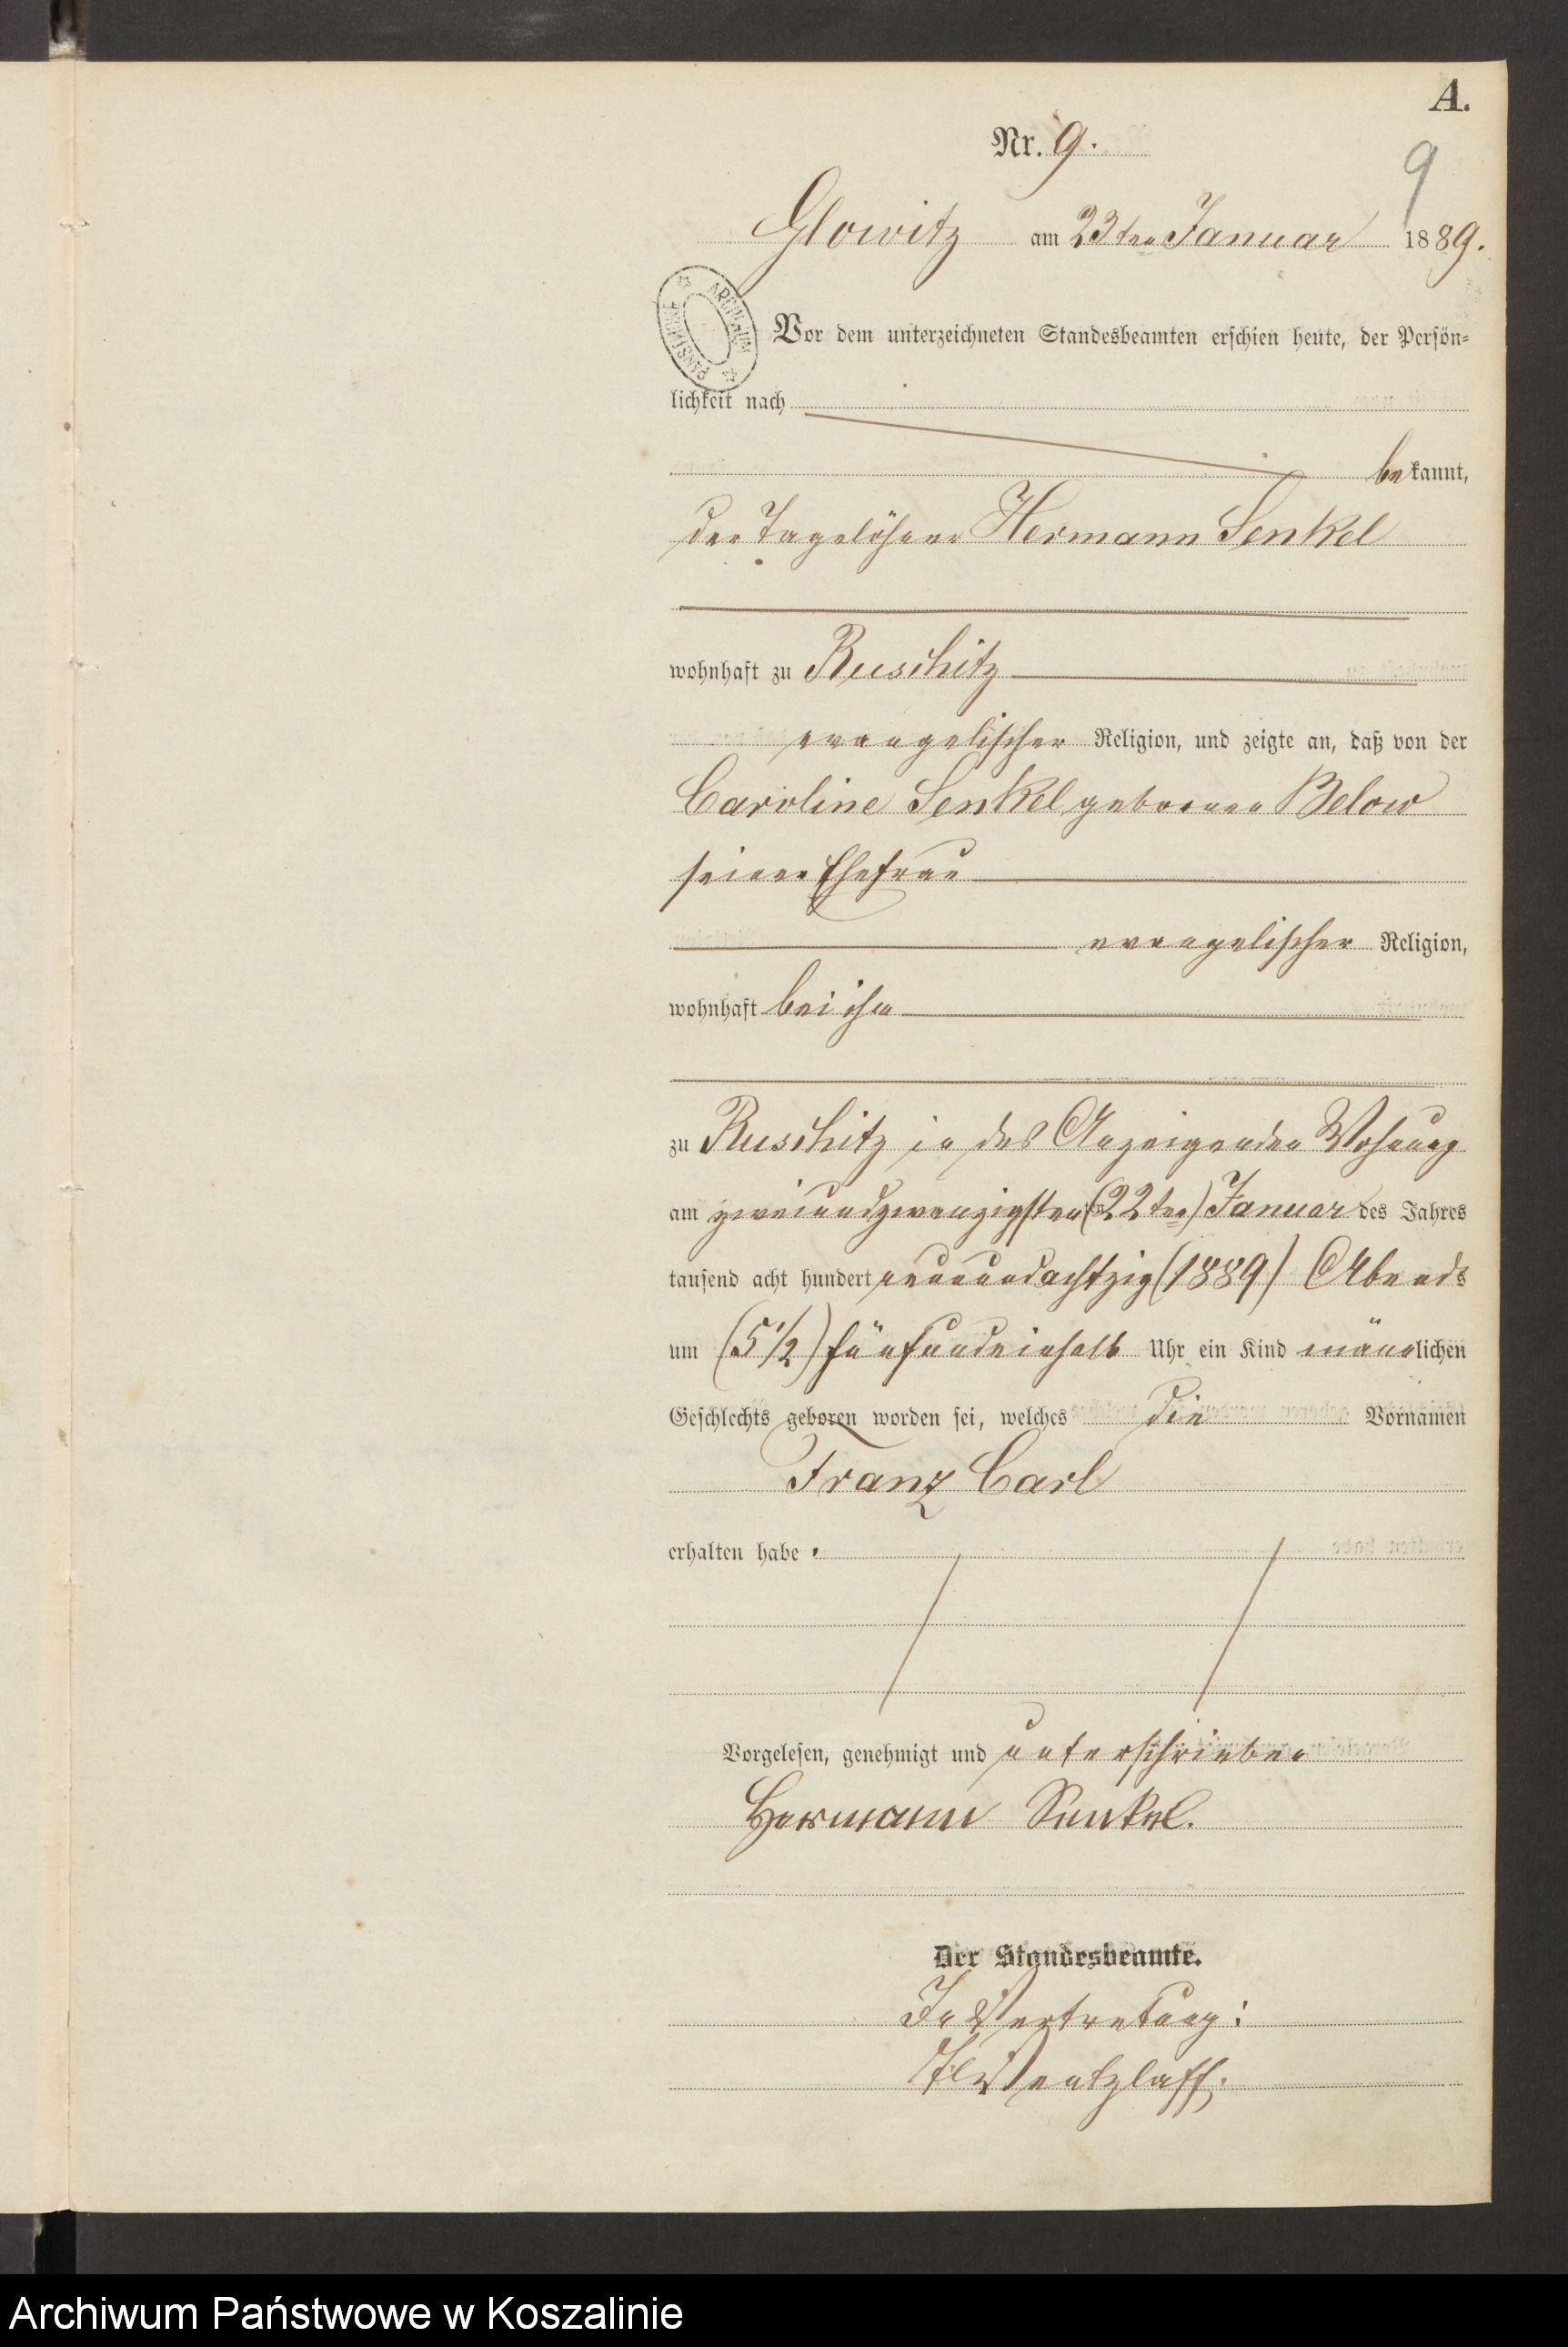 A.
Nr. 9.
9
Glowitz am 23ten Januar 1889.
ARCHIWUM PAŃSTWOWE
Vor dem unterzeichneten Standesbeamten erschien heute, der Persön-
lichkeit nach
bekannt,
der Tagelöhner Hermann Senkel
wohnhaft zu Ruschitz
evangelischer Religion, und zeigte an, daß von der
Caroline Senkel geborenen Below
seiner Ehefrau
evangelischer Religion,
wohnhaft bei ihm
zu Ruschitz in des Anzeigenden Wohnung
am zweiundzwanzigsten (22ten) Januar des Jahres
tausend acht hundert neunundachtzig (1889) Abends
um (5 1/2) fünfundeinhalb Uhr ein Kind männlichen
Geschlechts geboren worden sei, welches die Vornamen
Franz Carl
erhalten habe.
Vorgelesen, genehmigt und unterschrieben
Hermann Senkel.
Der Standesbeamte.
In Vertretung:
Wentzlaff.
Archiwum Państwowe w Koszalinie